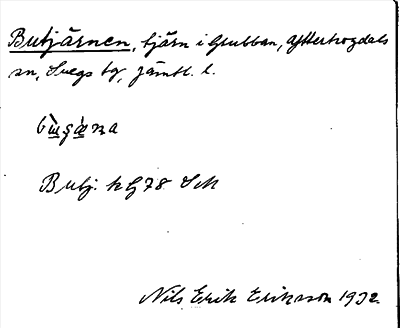 Butjärnen, tjärn i Grubban, Ytterhogdals
sn, Svegs tg, Jämtl. l.
Butj. k G78 SM
Nils Erik Eriksson 1932